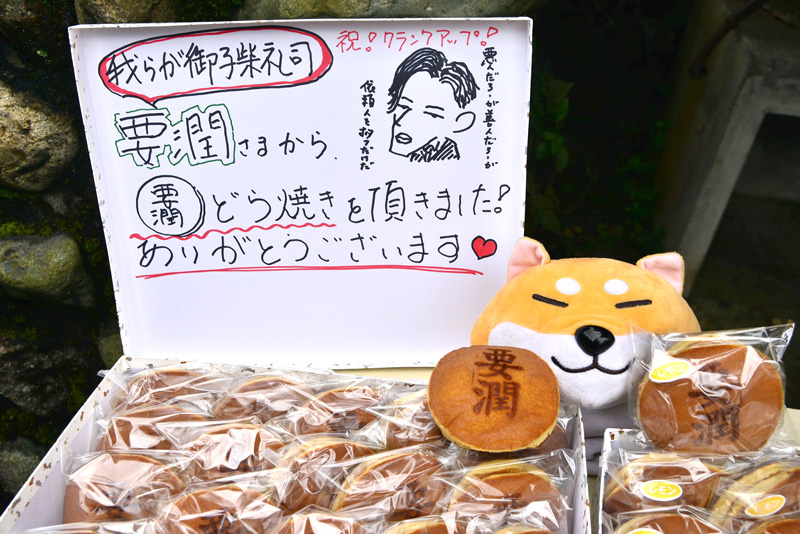 祝!クランクアップ!
我らが御子柴礼司
要潤さまから、
悪人だろうが善人だろうが
依頼人を救うだけだ
要潤
どら焼きを頂きました!
ありがとうございます
要潤
要潤
レモン